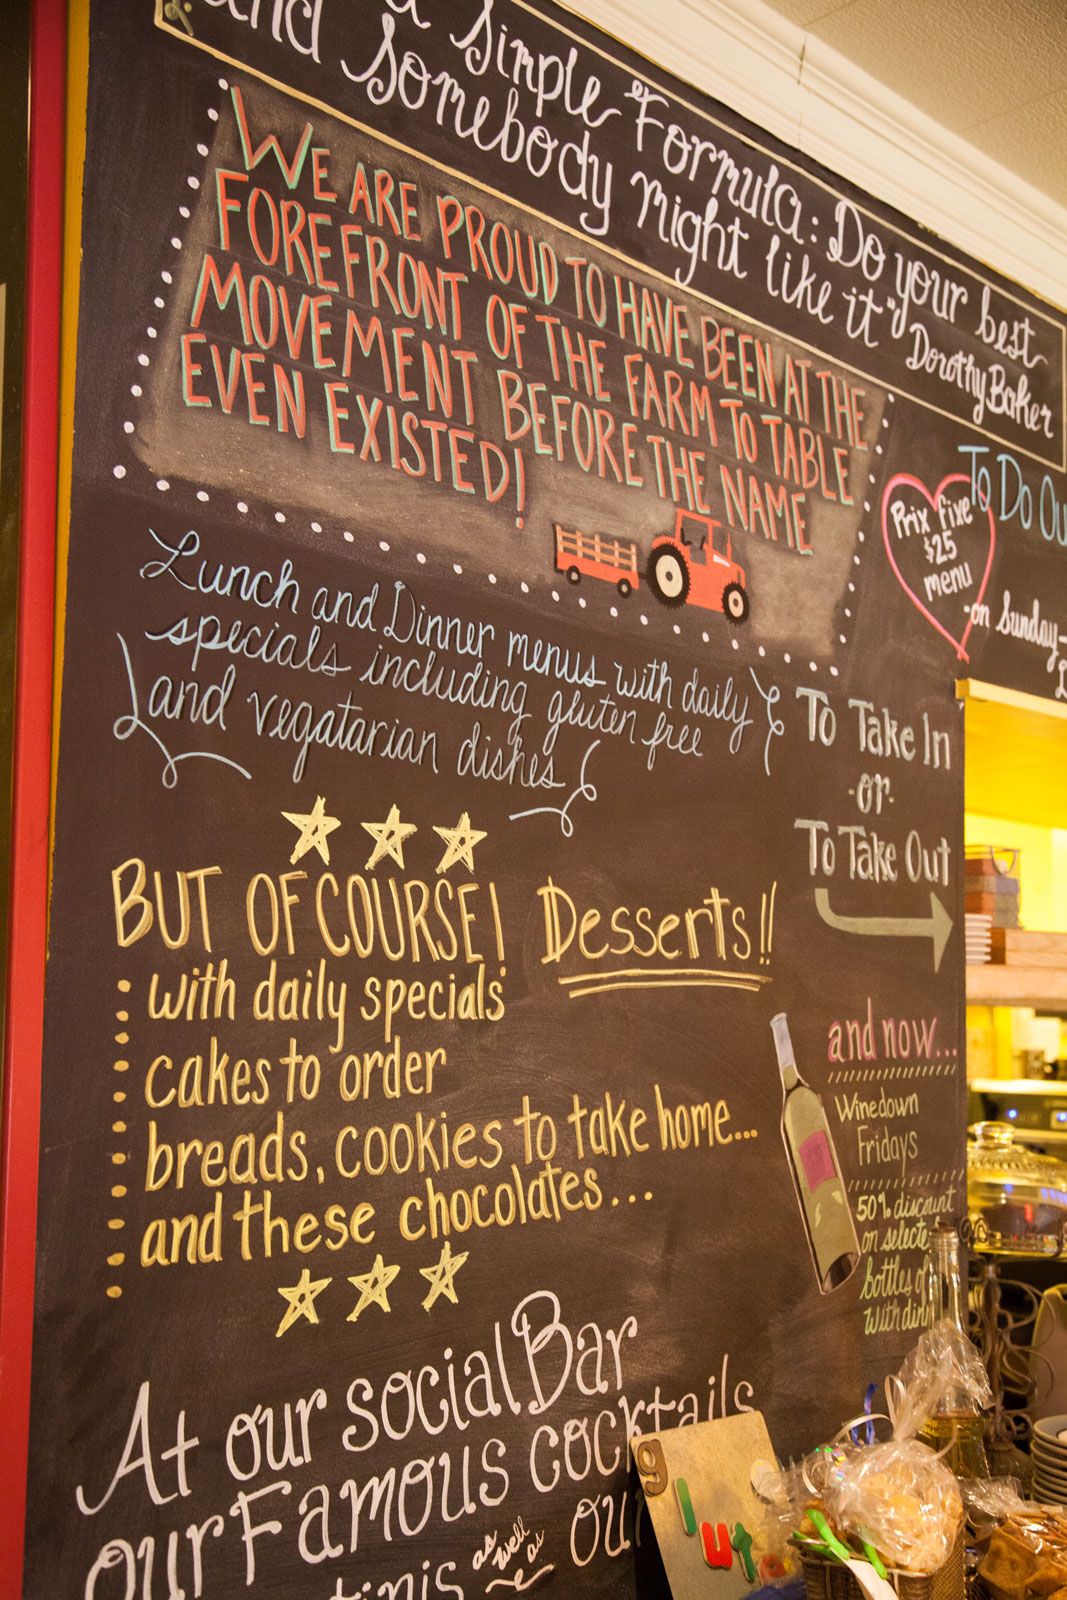 a Simple Formula: Do your best
and Somebody might like it" Dorothy Baker
WE ARE PROUD TO HAVE BEEN AT THE
FOREFRONT OF THE FARM TO TABLE
MOVEMENT BEFORE THE NAME
EVEN EXISTED!
To Do Ou
Prix fixe
$25
menu
-on Sunday-
Lunch and Dinner menus with daily
specials including gluten free
and vegatarian dishes
To Take In
-or-
To Take Out
BUT OF COURSE! Desserts!!
with daily specials
cakes to order
breads, cookies to take home...
and these chocolates...
and now...
Winedown
Fridays
50% discount
on selecte
bottles of
with dinn
At our social Bar
our Famous cocktails
tinis as well as our